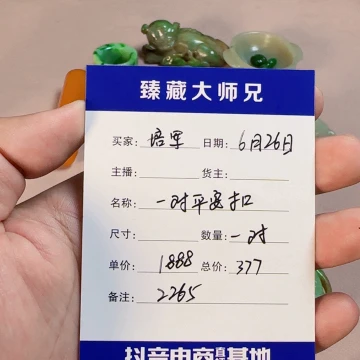 臻藏大师兄
买家: 培军 日期: 6月26日
主播: 货主:
名称: 一对平安扣
尺寸: 数量: 一对
单价: 1888 总价: 377
备注: 2265
抖音电商直播基地